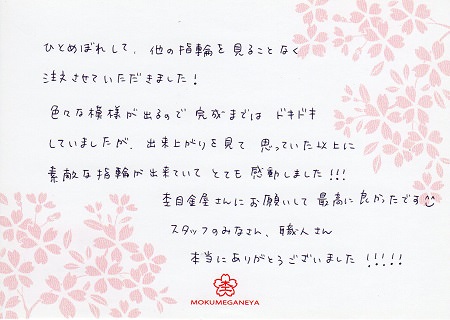 ひとめぼれして、他の指輪を見ることなく
注文させていただきました！
色々な模様が出るので完成までは ドキドキ
していましたが、出来上がりを見て 思っていた以上に
素敵な指輪が出来ていて とても感動しました!!!
杢目金屋さんにお願いして 最高に良かったです
スタッフのみなさん、職人さん
本当にありがとうございました !!!!!
杢
MOKUMEGANEYA